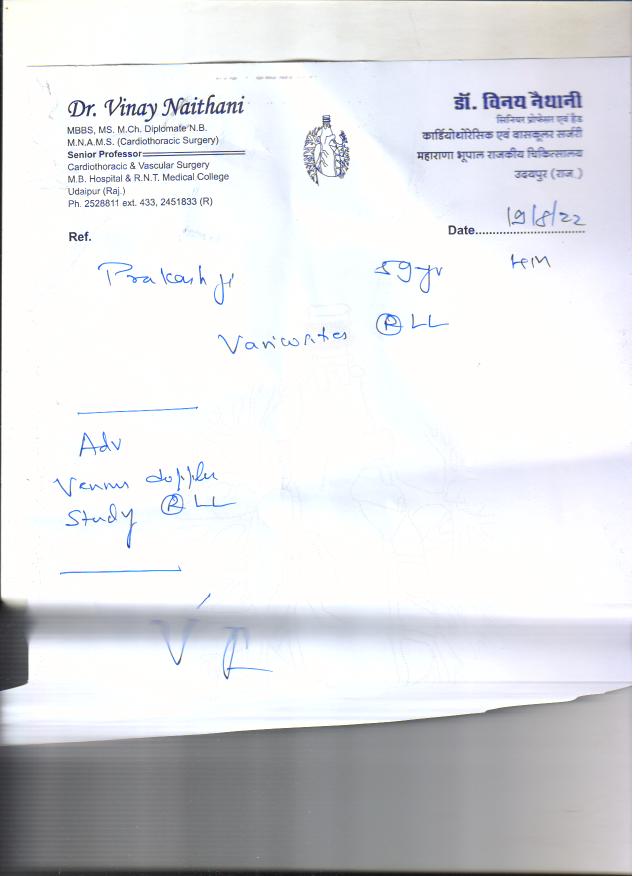 Dr. Vinay Naithani
MBBS, MS. M.Ch. Diplomate N.B.
M.N.A.M.S. (Cardiothoracic Surgery)
Senior Professor
Cardiothoracic & Vascular Surgery
M.B. Hospital & R.N.T. Medical College
Udaipur (Raj.)
Ph. 2528811 ext. 433, 2451833 (R)
डॉ. विनय नैथानी
सिनियर प्रोफेसर एवं हैड
कार्डियोथोरेसिक एवं वासकूलर सर्जरी
महाराणा भूपाल राजकीय चिकित्सालय
उदयपुर (राज.)
Ref.
Date 19/8/22
Prakash ji 59 yr
Varicosities Ⓡ LL
Adv
Venous doppler
Study Ⓡ LL